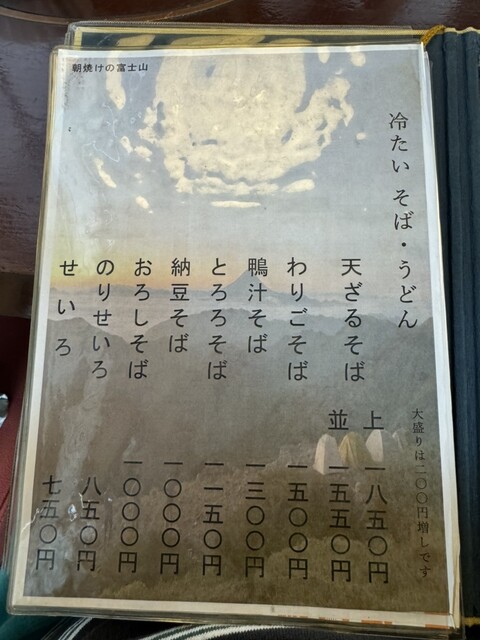 朝焼けの富士山
冷たい そば・うどん
大盛りは二〇〇円増しです
天ざるそば
上 一八五〇円
並 一五五〇円
わりごそば 一五〇〇円
鴨汁そば 一三〇〇円
とろろそば 一一五〇円
納豆そば 一〇〇〇円
おろしそば 一〇〇〇円
のりせいろ 八五〇円
せいろ 七五〇円